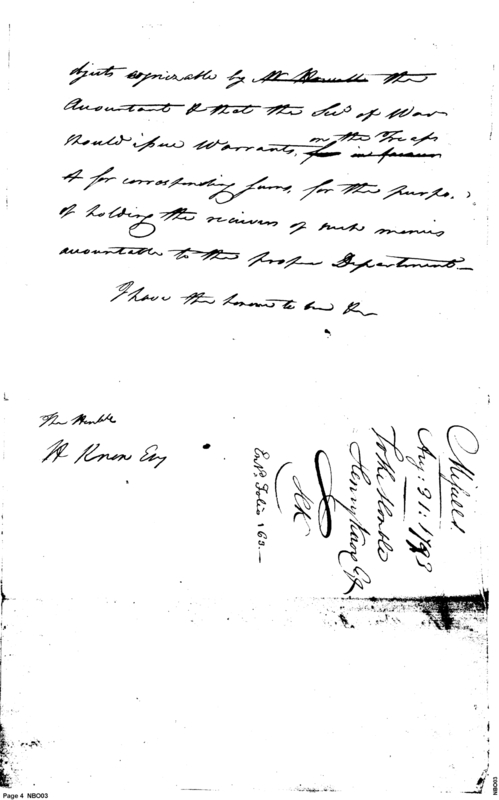 objects cognizable by the
Accountant & that the Secy of War
should issue Warrants, on the Treasy
& for corresponding sums, for the purpose
of holding the receivers of such monies
accountable to the proper Department—
I have the honour to be &c
The Honble
H Knox Esq
Aug: 31: 1793
To the Honble
Henry Knox Esqr
Entd. Folio 163.—
Page 4 NBO03
NBO03